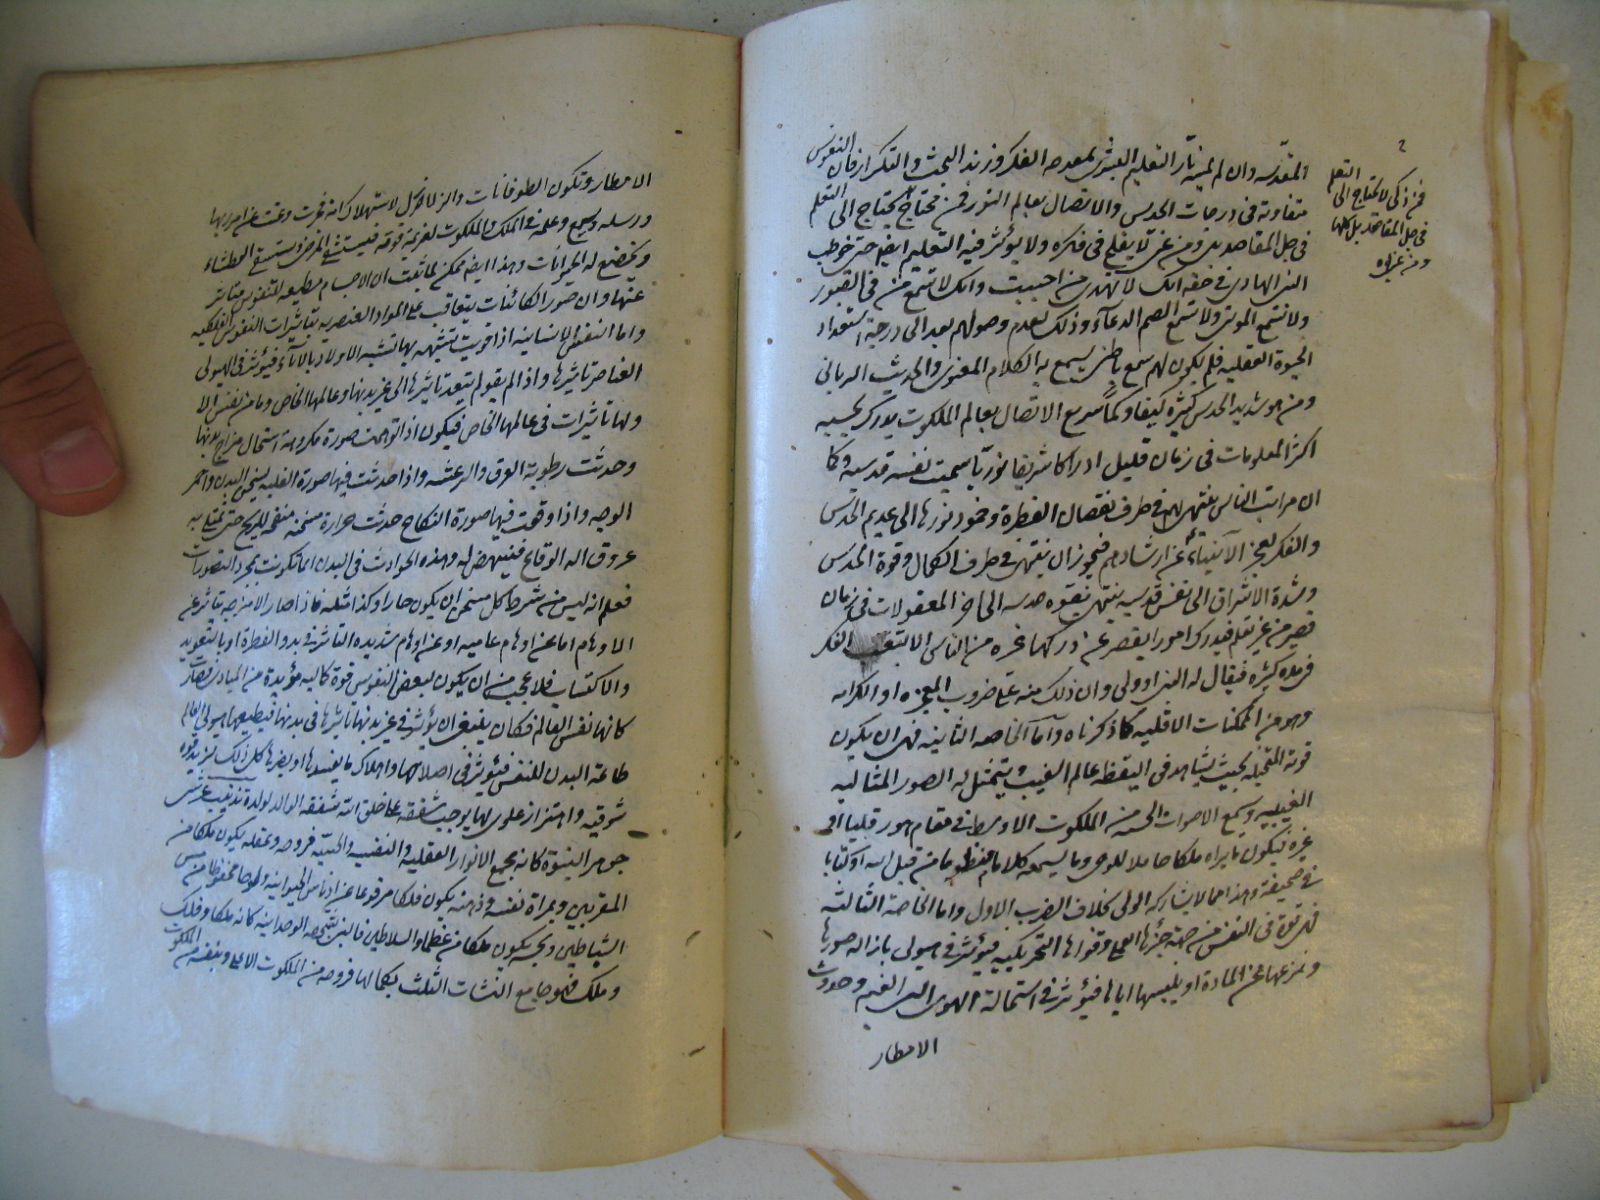 المقدسه وان لم يهيأ التعليم البشرى بمعدحه الفكر وزند البحث والتكرار فان النفوس
متفاوتة فى درجات الحدس والاتصال بعالم النور فمن محتاج يحتاج الى التعلم
فى جل المقاصد بل ومن غبى لا يفلح فى فكره ولا يؤثر فيه التعليم ايضا حتى خوطب
النبى الهادى فى حقه انك لا تهدى من احببت وانك لا تسمع من فى القبور
ولا تسمع الموتى ولا تسمع الصم الدعاء وذلك لعدم وصولهم بعد الى درجة استعداد
الحيوة العقليه فلم يكون لهم سمع باطنى يسمع به الكلام المعنوى والحديث الربانى
ومن هو شديد الحدس كثيره كيفا وكما سريع الاتصال بعالم الملكوت يدرك بحدسه
اكثر المعلومات فى زمان قليل ادراكا شريفا نوريا سميت نفسه قدسيه وكما
ان مراتب الناس ينتهى بهم فى طرف نقصان الفطرة وخمود نورها الى عديم الحدس
والفكر يعجز الانبياء عن ارشادهم فيجوز ان ينتهى فى طرف الكمال وقوة الحدس
وشدة الاشراق الى نفس قدسيه ينتهى بقوه حدسه الى اخر المعقولات فى زمان
قصير من غير تعلم فيدرك امورا يقصر عن دركها غيره من الناس الا بتعب الفكر
فى مده كثيره فيقال له النبى او ولى وان ذلك منه على ضروب المعجزه او الكرامه
وهو من الممكنات الاقليه كما ذكرناه واما الخاصه الثانيه فهى ان يكون
قوته المتخيله بحيث يشاهد فى اليقظه عالم الغيب يتمثل له الصور المثاليه
الغيبيه ويسمع الاصوات الحسيه من الملكوت الاوسط فى مقام هورقليا او
غيره فيكون ما يراه ملكا حاملا للوحى وما يسمعه كلاما منظوما من قبل الله او كتابا
فى صحيفة وهذا مما لا يشاركه الولى بخلاف الضرب الاول واما الخاصه الثالثه
فهى قوة فى النفس من جهة جزئها العملى وقواها التحريكيه فيؤثر فى هيولى بازاله صورها
ونزعها عن المادة او يلبسها اياها فيؤثر فى استحالة الهوى الى الغيم وحدوث
الامطار
فمن ذكى لا يحتاج الى التعلم
فى جل المقاصد بل كلها
ومن غبى
الامطار وتكون الطوفانات والزلازل لاستهلاك امة فجرت وعتت عن امر ربها
ورسله ويسمع دعائه فى الملك والملكوت لعزيمة قوته فيستشفى المرضى ويستسقى العطشاء
ويخضع له الحيوانات وهذا ايضا ممكن لما ثبت ان الاجسام مطيعه للنفوس متاثره
عنها وان صور الكائنات يتعاقب على المواد العنصريه بتاثيرات النفوس الفلكيه
واما النفس الانسانيه اذا قويت تشبهه بها تشبه الاولاد بالاباء فيؤثر فى هيولى
العناصر تاثيرها واذا لم يقو لم يتعد تاثيرها الى غير بدنها وعالمها الخاص وما من نفس الا
ولها تاثيرات فى عالمها الخاص فيكون اذا توهمت صورة مكروهة استحال مزاج بدنها
وحدثت رطوبة العرق والرعشه واذا حدثت فيها صورة الغلبه يسخن البدن واحمر
الوجه واذا وقعت فيها صورة النكاح حدثت حرارة مسخنه منفخه للريح حتى يمتلى به
عروق اله الوقاع فينهض له وهذه الحوادث فى البدن انما تكونت بمجرد التصورات
فعلم انه ليس من شرط كل مسخن ان يكون حارا وكذا مثله فاذا صار الامزجه يتاثر عن
الاوهام اما عن اوهام عاميه او عن اوهام شديده التاثير فى بدو الفطرة او بالتعويد
والاكتساب فلا عجب من ان يكون لبعض النفوس قوة كماليه مؤيدة من المبادى فصارت
كانها نفس العالم فكان ينبغى ان يؤثر فى غير بدنها تاثيرها فى بدنها فيطيعها هيولى العالم
طاعة البدن للنفس فيؤثر فى اصلاحها واهلاك ما يفسدها او يضرها كل ذلك لمزيد قوه
شوقيه واهتزاز علوى لها يوجب شفقه على خلق الله شفقه الوالد لولده تذنيب عرشى
جوهر النبوة كانه مجمع الانوار العقليه والنفسيه والحسيه فروحه وعقله يكون ملكا من
المقربين ومراة نفسه وذهنه يكون فلكا مرفوعا عن ادناس الحيوانيه ولوحا محفوظا من مس
الشياطين وحسه يكون ملكا من عظماء السلاطين فالنبى بشخصه الوحدانيه كانه ملك وفلك
وملك فهو جامع النشات الثلث بكمالها فروحه من الملكوت الاعلى ونفسه من الملكوت